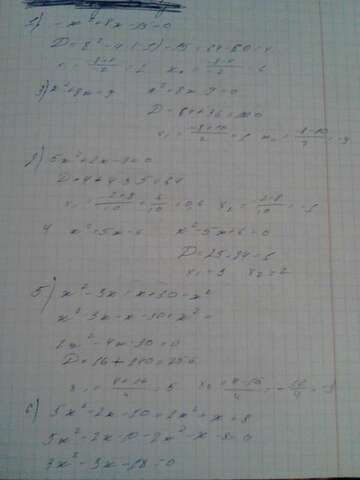 1) -x² + 8x - 15 = 0
D = 8² - 4·(-1)·-15 = 64 - 60 = 4
3) x² + 8x = 9   x² + 8x - 9 = 0
D = 64 + 36 = 100
x₁ = (-8+10)/2 = 1   x₂ = (-8-10)/2 = -9
2) 5x² + 2x - 3 = 0
D = 4 + 4·3·5 = 64
x₁ = (-2+8)/10 = 6/10 = 0,6   x₂ = (-2-8)/10 = -1
4   x² = 5x - 6   x² - 5x + 6 = 0
D = 25 - 24 = 1
x₁ = 3   x₂ = 2
5) x² - 3x = x + 30 - x²
x² - 3x - x - 30 + x² =
2x² - 4x - 30 = 0
D = 16 + 240 = 256
x₁ = (4+16)/4 = 5   x₂ = (4-16)/4 = -12/4 = -3
6) 5x² - 2x - 10 = 2x² + x + 8
5x² - 2x - 10 - 2x² - x - 8 = 0
3x² - 3x - 18 = 0